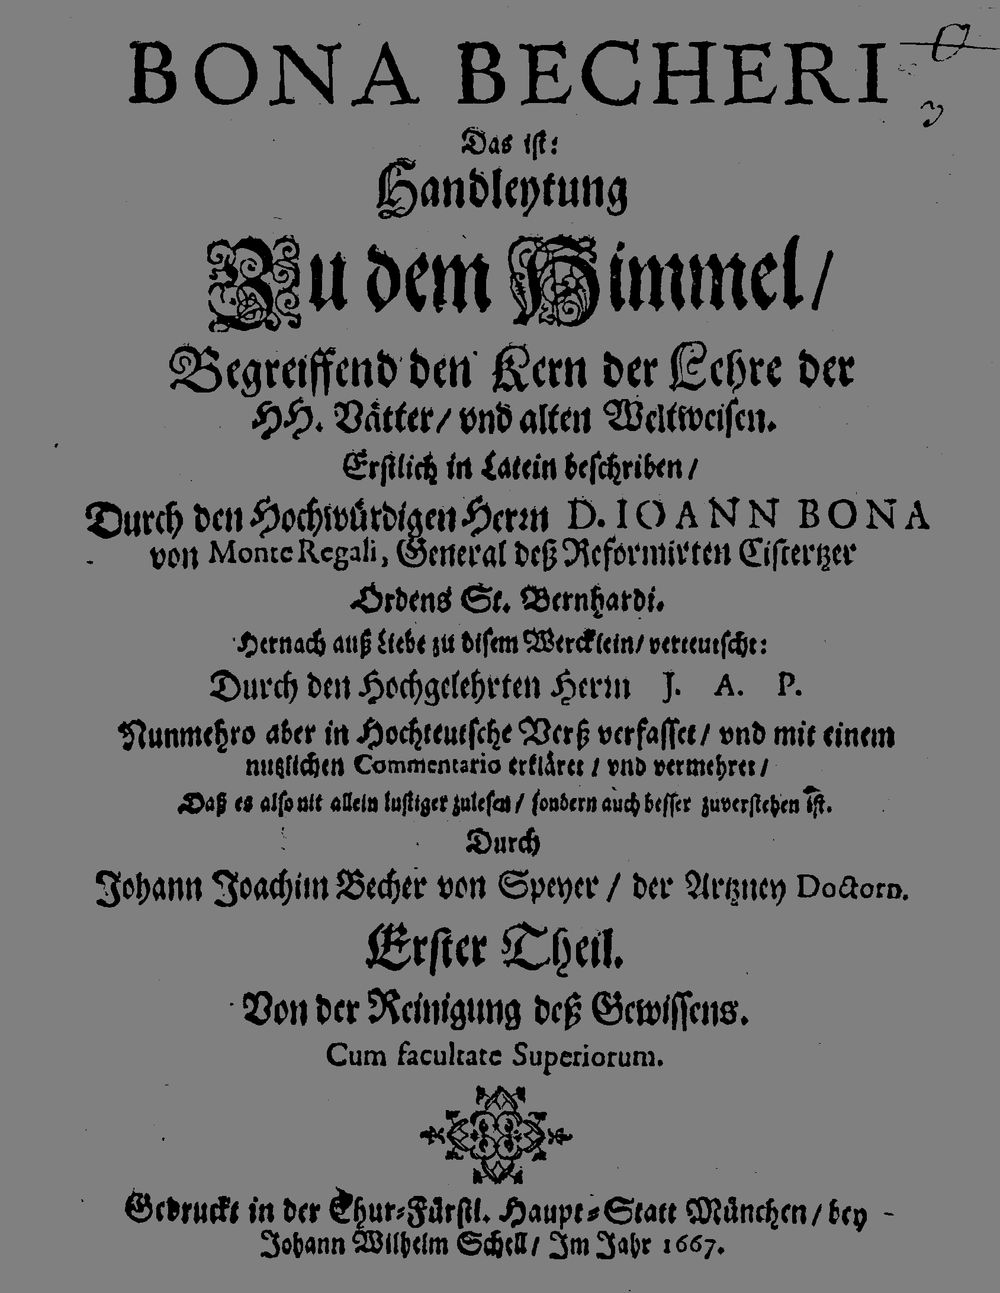 BONA BECHERI
Das ist:
Handleytung
Zu dem Himmel/
Begreiffend den Kern der Lehre der
HH. Vätter/ vnd alten Weltweisen.
Erstlich in Latein beschriben/
Durch den Hochwürdigen Herrn D. IOANN BONA
von Monte Regali, General deß Reformirten Cistertzer
Ordens St. Bernhardi.
Hernach auß Liebe zu disem Wercklein/ verteutscht:
Durch den Hochgelehrten Herrn J. A. P.
Nunmehro aber in Hochteutsche Verß verfasset/ vnd mit einem
nutzlichen Commentario erkläret/ vnd vermehret/
Daß es also nit allein lustiger zulesen/ sondern auch besser zuverstehen ist.
Durch
Johann Joachim Becher von Speyer/ der Artzney Doctorn.
Erster Theil.
Von der Reinigung deß Gewissens.
Cum facultate Superiorum.
Gedruckt in der Chur-Fürstl. Haupt-Statt München/ bey
Johann Wilhelm Schell/ Im Jahr 1667.